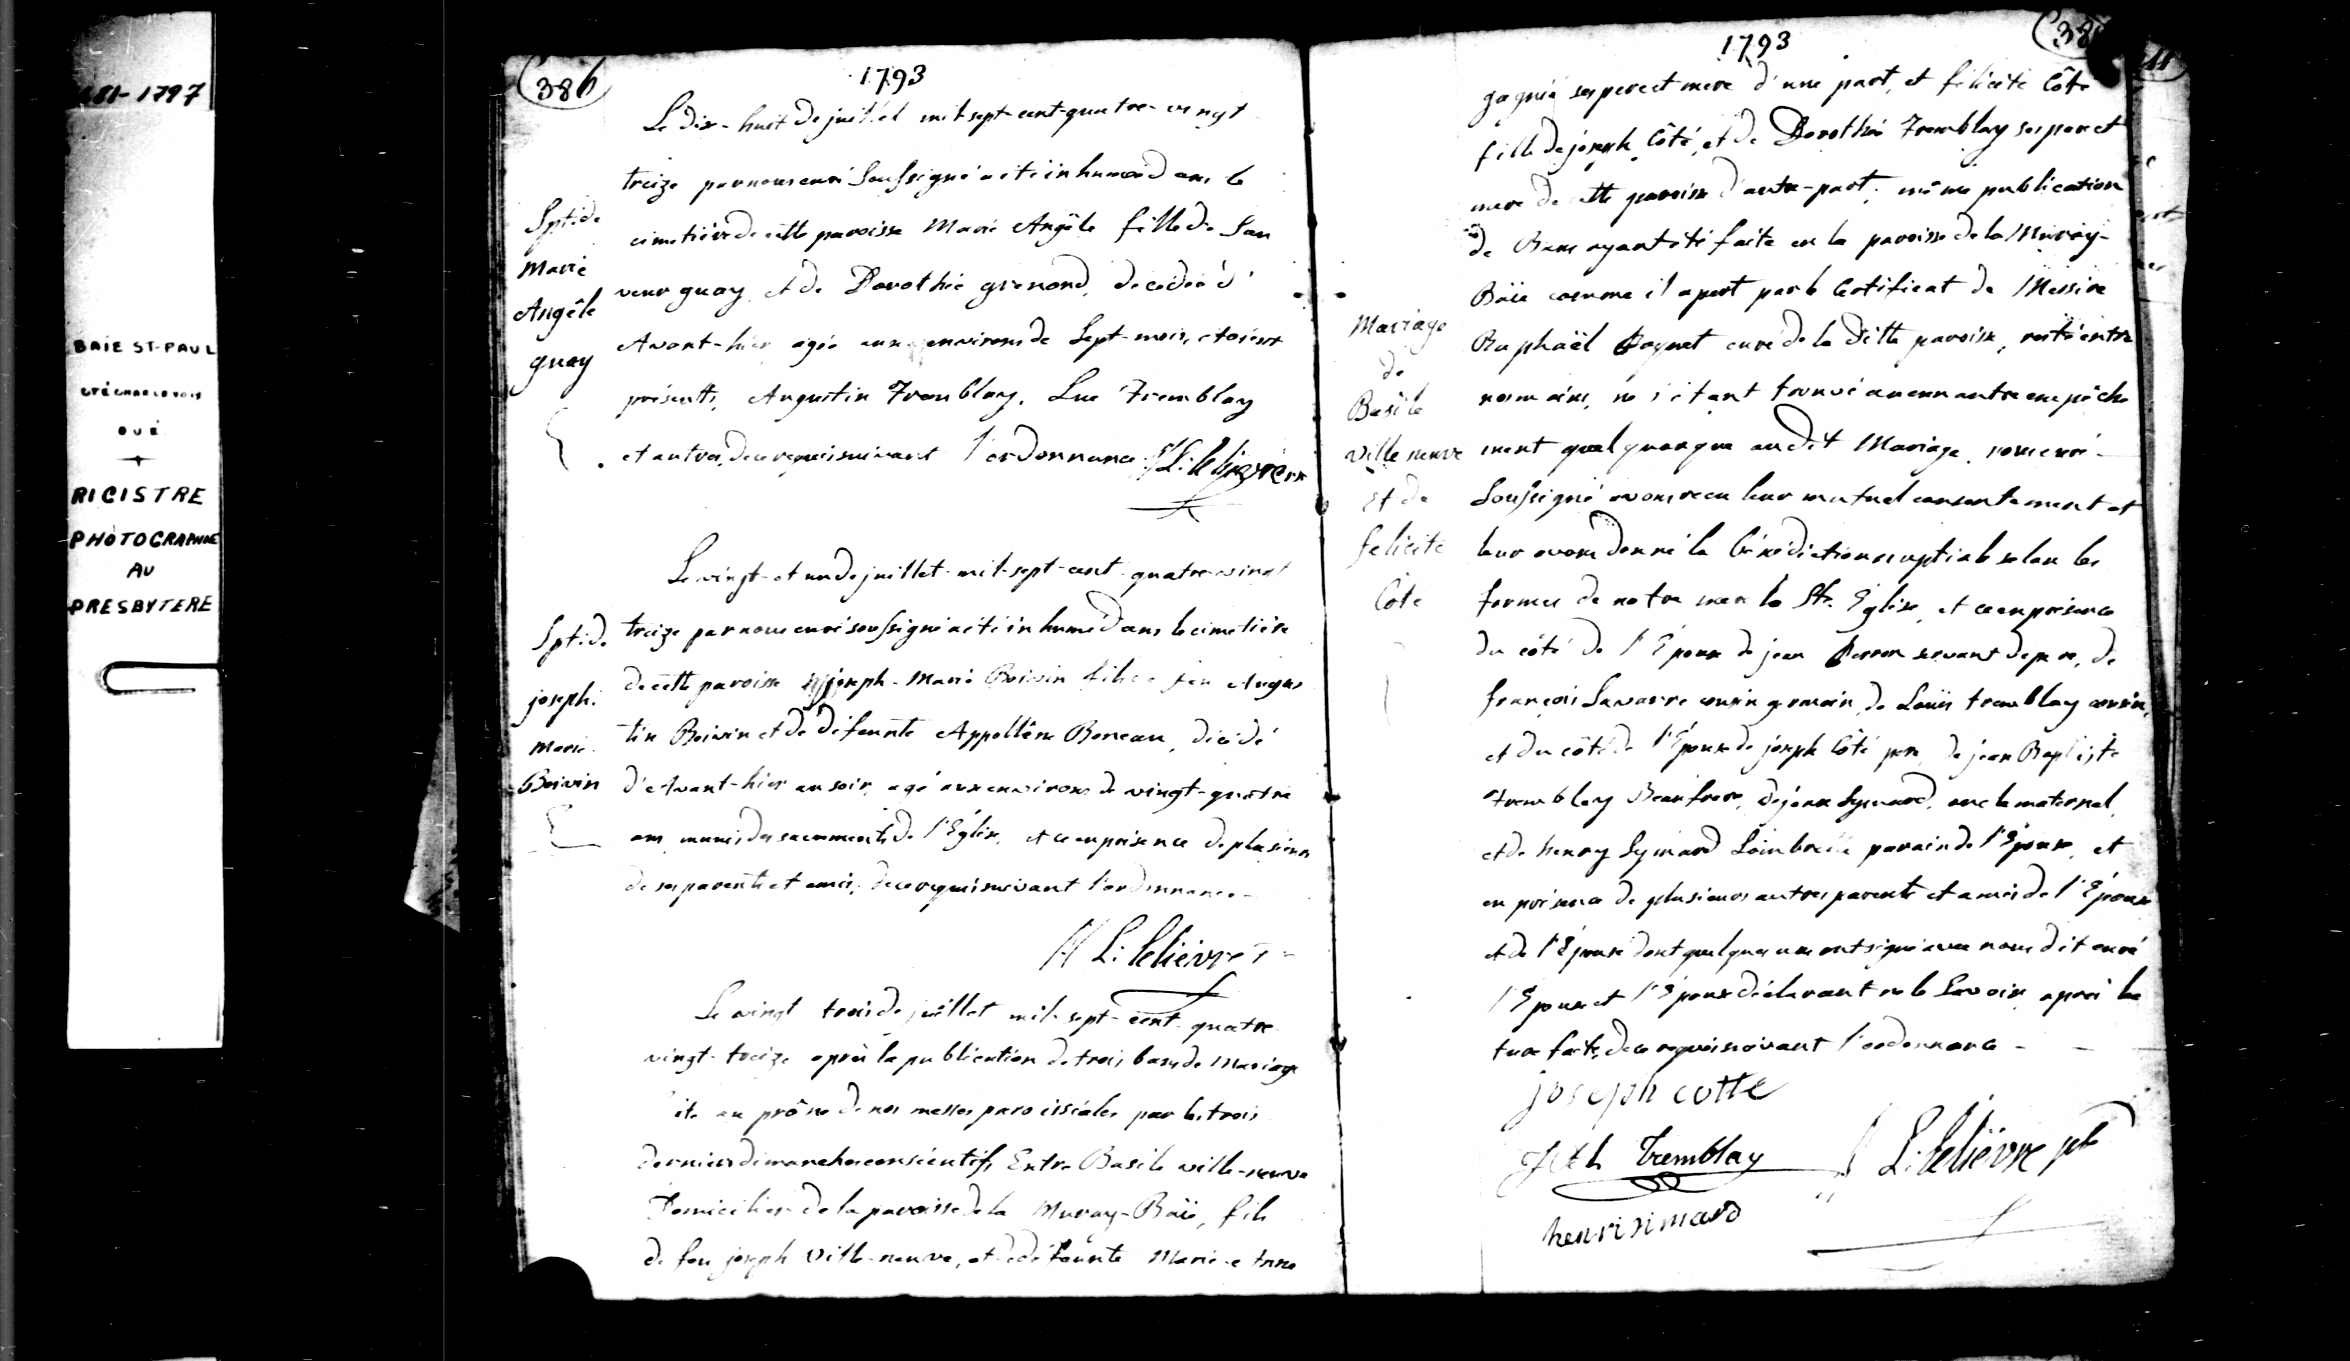 1797
BAIE ST-PAUL
RIGISTRE
PHOTOGRAPHIE
AU
PRESBYTERE
386
1793
Le dix-huit de juillet mil sept-cent-quatre-vingt
treize par nous curé Soussigné a été inhumé dans le
cimetière de cette paroisse Marie Angêle fille de Sau
veur guay et de Dorothée grenond, decedée d'
Avant-hier agée aux environs de Sept-mois, etoient
présents, Augustin Tremblay, Luc Tremblay
et autres, de ce requis suivant l'ordonnance L: leliévre
Spt: de
Marie
Angêle
guay
Le vingt-et un de juillet mil-sept-cent quatre-vingt
treize par nous curé soussigné a été inhumé dans le cimetière
de cette paroisse joseph-Marie Boivin fils de feu Augus
tin Boivin et de défeunte Appolline Boneau, décédé
d'Avant-hier au soir, agé aux environs de vingt-quatre
ans, munis des sacrements de l'Église, et ce en présence de plusieurs
de ses parents et amis, de ce requis suivant l'ordonnance-
L: leliévre
Spt: de
joseph:
Marie
Boivin
Le vingt trois de juillet mil-sept-cent-quatre
vingt-treize après la publication de trois bans de Mariage
au prône de nos messes paroissiales par les trois
derniers dimanches consécutifs, Entre Basile ville-neuve
Domicilier de la paroisse de la Muray-Baïe, fils
de feu joseph Ville-neuve, et de défeunte Marie-Anne
1793
gagnié ses pere et mere d'une part, et félicité Côté
fille de joseph Côté, et de Dorothée Tremblay ses pere et
mere de cette paroisse d'autre-part; même publication
de Bans ayant été faite en la paroisse de la Muray-
Baïe comme il apert par le Certificat de Messire
Raphaël Paquet curé de la ditte paroisse, entre
ne s'étant trouvé aucun autre empêche
ment quelquonque au dit Mariage, nous curé-
Soussigné avons recu leur mutuel consentement et
leur avons donné la bénédiction nuptiale selon les
formes de notre mere la Ste. Église, et ce en présence
du côté de l'Époux de jean Perron servant de pere, de
françois Savarre cousin germain, de Louïs tremblay cousin,
et du côté de l'Épouse de joseph Côté pere, de jean Baptiste
Tremblay Beaufrere, de jean Symard, oncle maternel,
et de henry Symard Lombrette parain de l'Épouse, et
en présence de plusieurs autres parents et amis de l'Époux
et de l'Épouse dont quelques uns ont signé avec nous dit curé
l'Époux et l'Épouse déclarant ne le Savoir, après lec
ture faite, de ce requis suivant l'ordonnance -
Mariage
de
Basile
ville neuve
et de
felicité
Côté
joseph cotte
Tremblay
L: leliévre ptr
henri simard